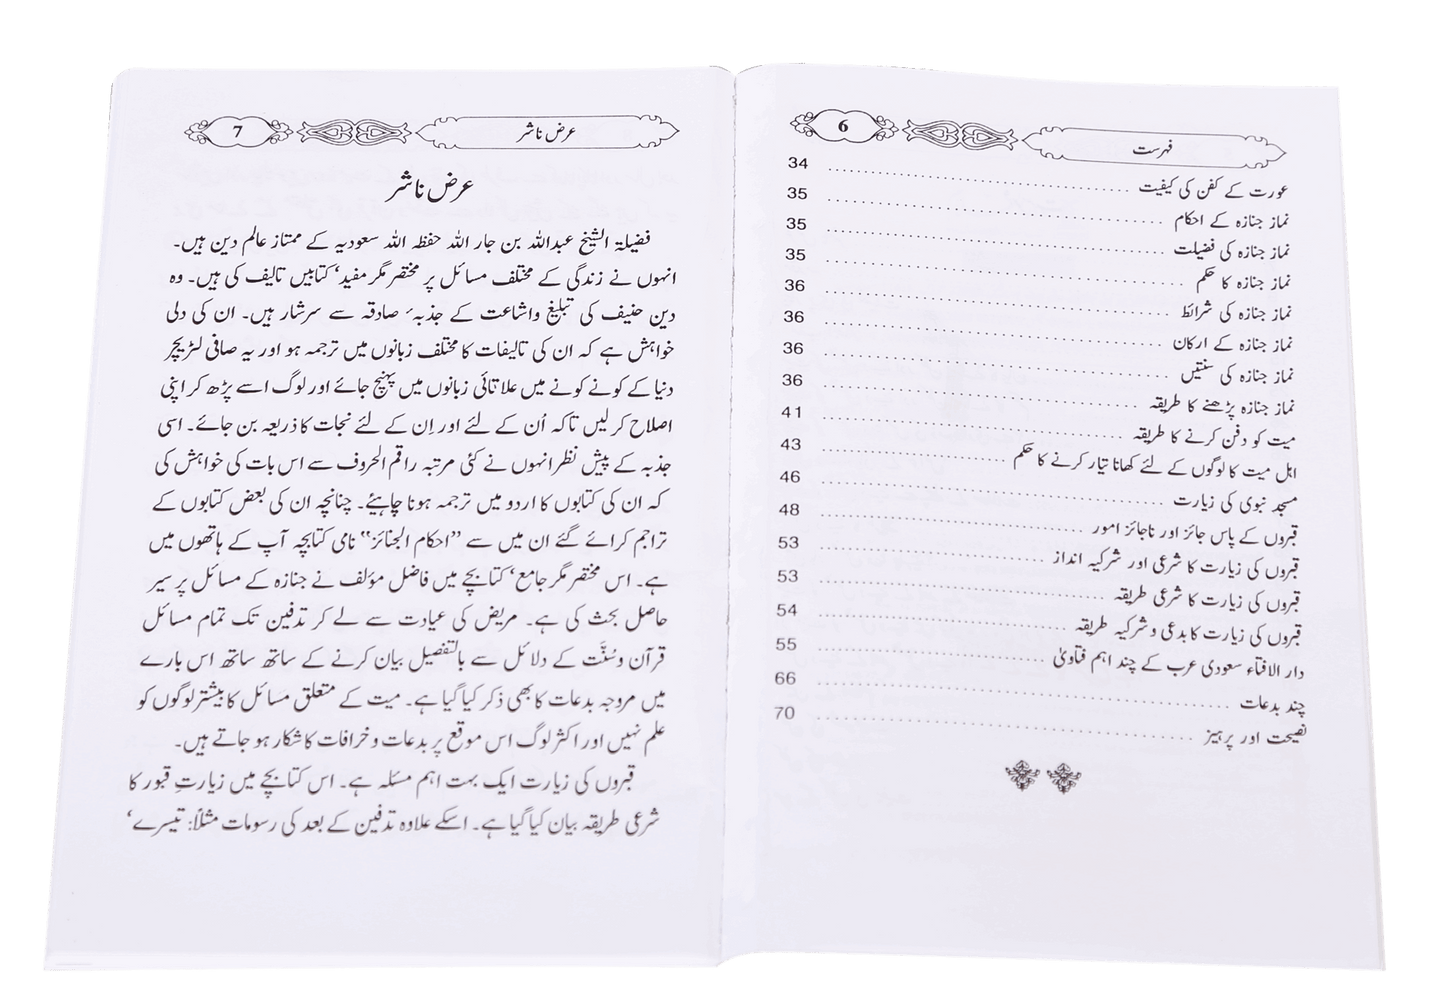 6
فہرست
عورت کے کفن کی کیفیت 34
نماز جنازہ کے احکام 35
نماز جنازہ کی فضیلت 35
نماز جنازہ کا حکم 35
نماز جنازہ کی شرائط 36
نماز جنازہ کے ارکان 36
نماز جنازہ کی سنتیں 36
نماز جنازہ پڑھنے کا طریقہ 36
میت کو دفن کرنے کا طریقہ 41
اہل میت کا لوگوں کے لئے کھانا تیار کرنے کا حکم 43
مسجد نبوی کی زیارت 46
قبروں کے پاس جائز اور ناجائز امور 48
قبروں کی زیارت کا شرعی اور شرکیہ انداز 53
قبروں کی زیارت کا شرعی طریقہ 53
قبروں کی زیارت کا بدعی و شرکیہ طریقہ 54
دار الافتاء سعودی عرب کے چند اہم فتاویٰ 55
چند بدعات 66
نصیحت اور پرہیز 70
7
عرض ناشر
عرض ناشر
فضیلۃ الشیخ عبداللہ بن جار اللہ حفظہ اللہ سعودیہ کے ممتاز عالم دین ہیں۔
انہوں نے زندگی کے مختلف مسائل پر مختصر مگر مفید‘ کتابیں تالیف کی ہیں۔ وہ
دین حنیف کی تبلیغ واشاعت کے جذبہء صادقہ سے سرشار ہیں۔ ان کی دلی
خواہش ہے کہ ان کی تالیفات کا مختلف زبانوں میں ترجمہ ہو اور یہ صافی لٹریچر
دنیا کے کونے کونے میں علاقائی زبانوں میں پہنچ جائے اور لوگ اسے پڑھ کر اپنی
اصلاح کر لیں تاکہ اُن کے لئے اور اِن کے لئے نجات کا ذریعہ بن جائے۔ اسی
جذبہ کے پیش نظر انہوں نے کئی مرتبہ راقم الحروف سے اس بات کی خواہش کی
کہ ان کی کتابوں کا اردو میں ترجمہ ہونا چاہیئے۔ چنانچہ ان کی بعض کتابوں کے
تراجم کرائے گئے ان میں سے ’’احکام الجنائز‘‘ نامی کتابچہ آپ کے ہاتھوں میں
ہے۔ اس مختصر مگر جامع‘ کتابچے میں فاضل مؤلف نے جنازہ کے مسائل پر سیر
حاصل بحث کی ہے۔ مریض کی عیادت سے لے کر تدفین تک تمام مسائل
قرآن وسُنَّت کے دلائل سے بالتفصیل بیان کرنے کے ساتھ ساتھ اس بارے
میں مروجہ بدعات کا بھی ذکر کیا گیا ہے۔ میت کے متعلق مسائل کا بیشتر لوگوں کو
علم نہیں اور اکثر لوگ اس موقع پر بدعات و خرافات کا شکار ہو جاتے ہیں۔
قبروں کی زیارت ایک بہت اہم مسئلہ ہے۔ اس کتابچے میں زیارتِ قبور کا
شرعی طریقہ بیان کیا گیا ہے۔ اسکے علاوہ تدفین کے بعد کی رسومات مثلاً: تیسرے‘